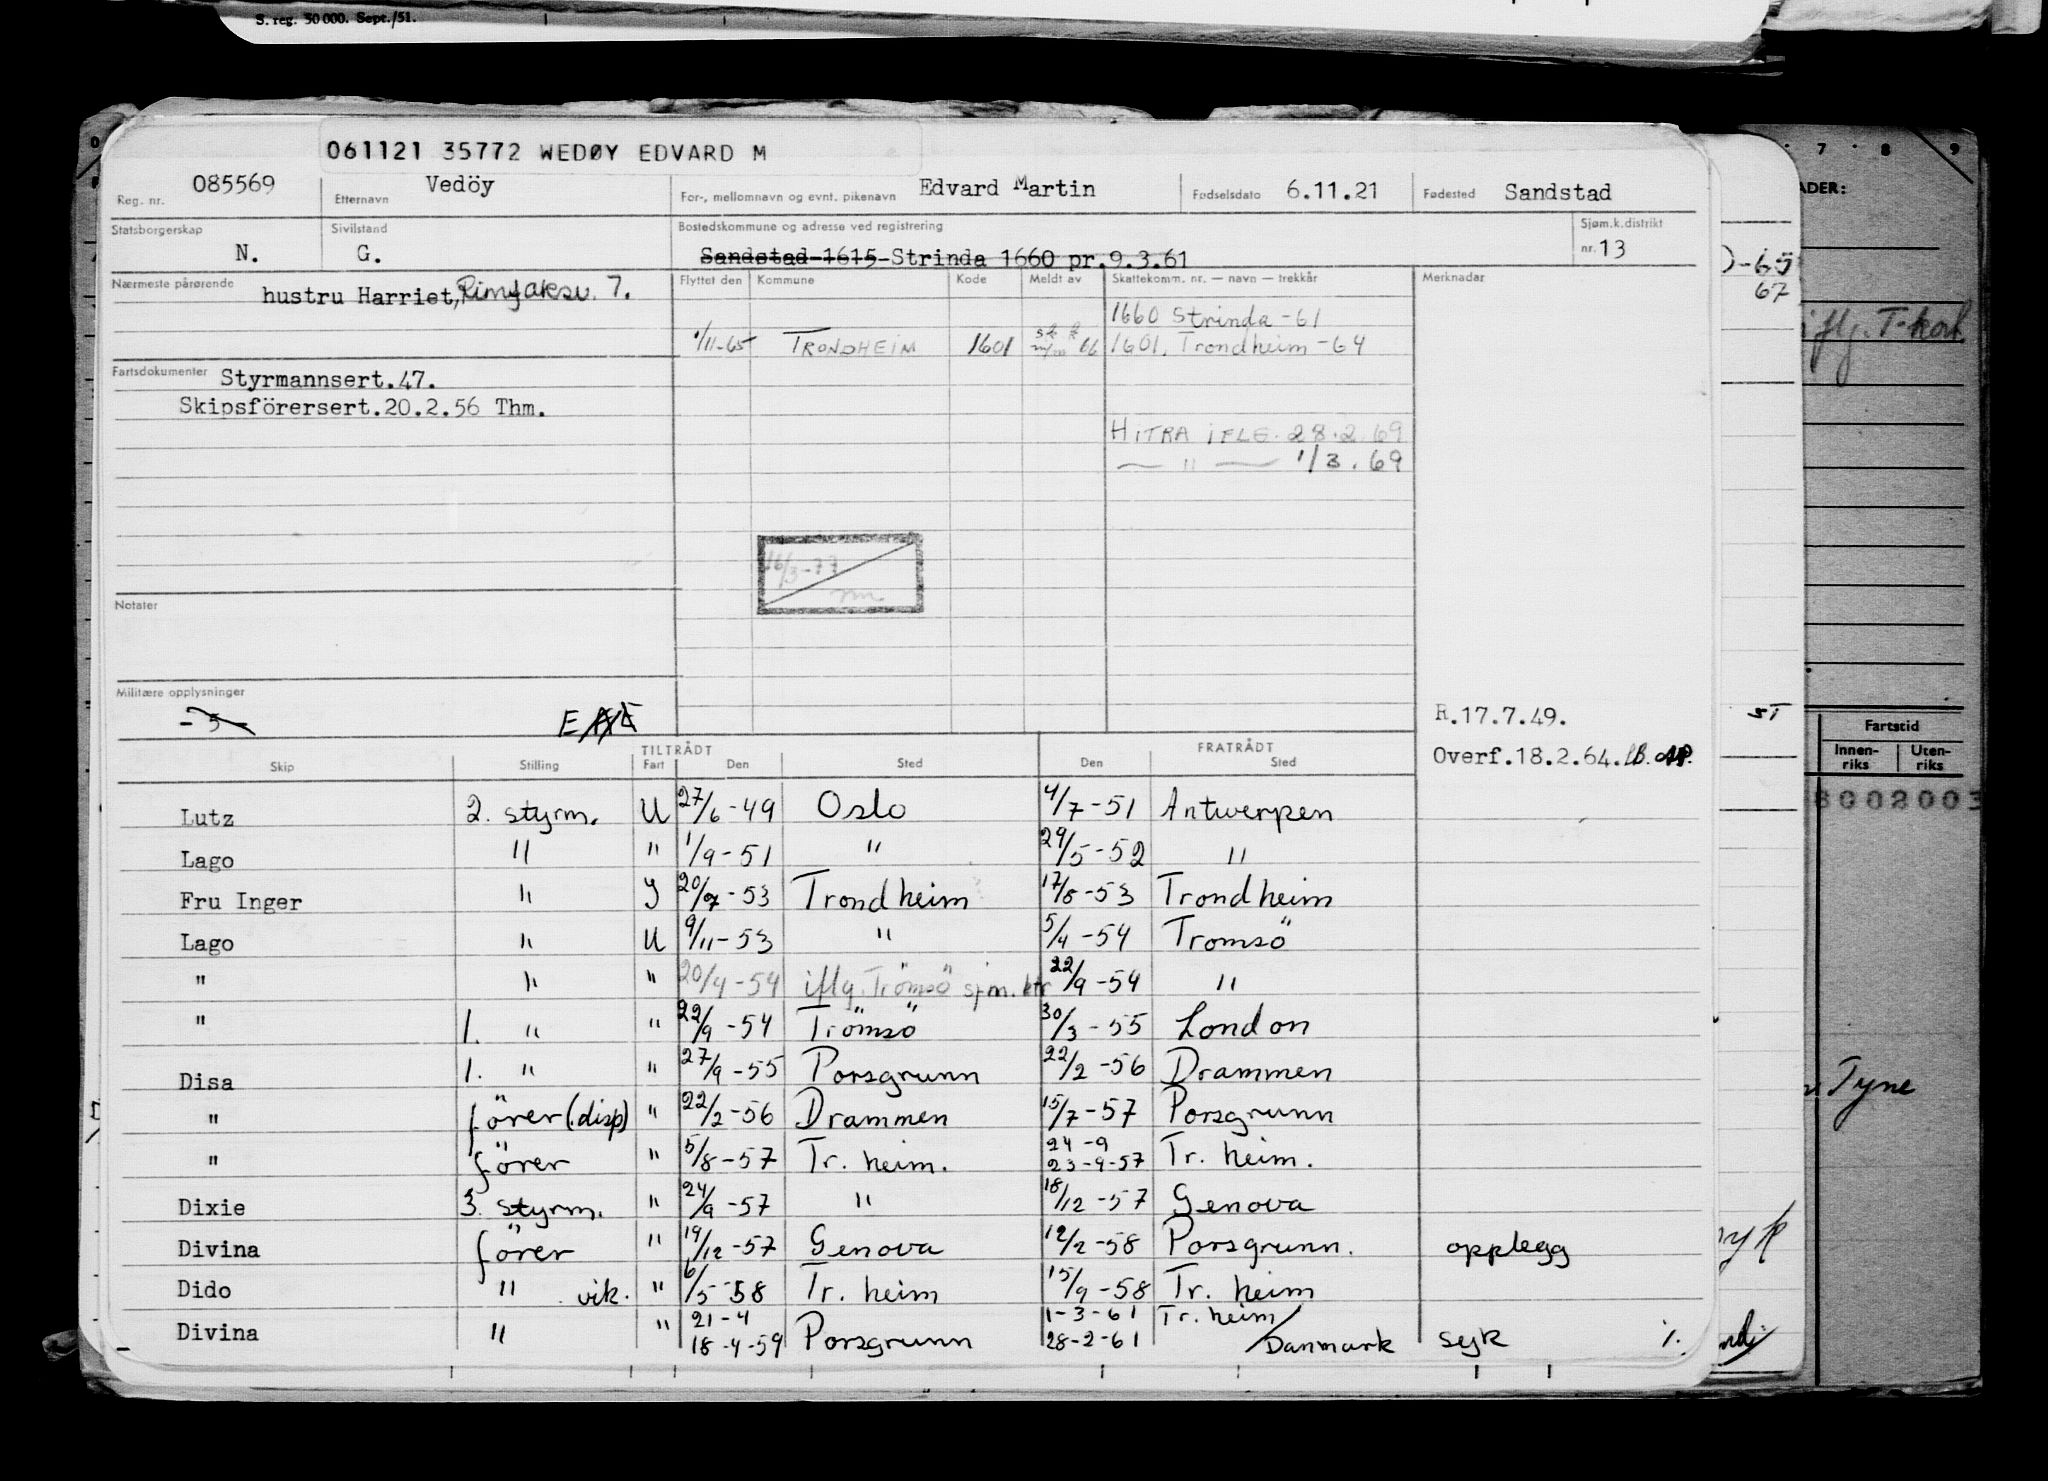 S. reg. 50 000. Sept./51.
061121 35772 WEDØY EDVARD M
Reg. nr. 085569 Etternavn Vedöy For-, mellomnavn og evnt. pikenavn Edvard Martin Fødselsdato 6.11.21 Fødested Sandstad
Statsborgerskap N. Sivilstand G. Bostedskommune og adresse ved registrering Sandstad 1615 Strinda 1660 pr.9.3.61 Sjøm.k.distrikt nr. 13
Nærmeste pårørende hustru Harriet, 7. Flyttet den Kommune Kode Meldt av Skattekomm. nr. — navn — trekkår Merknader
1660 Strinda -61
1/11-65 TRONDHEIM 1601 66 1601. Trondheim -64
Fartsdokumenter Styrmannsert.47.
Skipsförersert.20.2.56 Thm.
HITRA IFLG. 28.2.69
— " — 1/3.69
16/3-77
Notater
Militære opplysninger
- 5 - E
R.17.7.49.
Overf.18.2.64.
TILTRÅDT FRATRÅDT
Skip Stilling Fart Den Sted Den Sted
Lutz 2. styrm. U 27/6-49 Oslo 4/7-51 Antwerpen
Lago " " 1/9-51 " 29/5-52 "
Fru Inger " I 20/7-53 Trondheim 17/8-53 Trondheim
Lago " U 9/11-53 " 5/4-54 Tromsö
" " " 20/4-54 iflg. Tromsö sjm. ktr 22/9-54 "
" 1. " " 22/9-54 Tromsö 30/3-55 London
Disa 1. " " 27/9-55 Porsgrunn 22/2-56 Drammen
" förer (disp) " 22/2-56 Drammen 15/7-57 Porsgrunn
" förer " 5/8-57 Tr. heim. 24-9 23-9-57 Tr. heim.
Dixie 3. styrm. " 24/9-57 " 18/12-57 Genova
Divina förer " 19/12-57 Genova 12/2-58 Porsgrunn. opplegg
Dido " vik. " 6/5-58 Tr. heim 15/9-58 Tr. heim
Divina " " 21-4 18-4-59 Porsgrunn 1-3-61 28-2-61 Tr. heim/Danmark syk
7 8 9
ADER:
-65
67
iflg. T-
ST
Fartstid
Innen-riks Uten-riks
8002003
Tyne